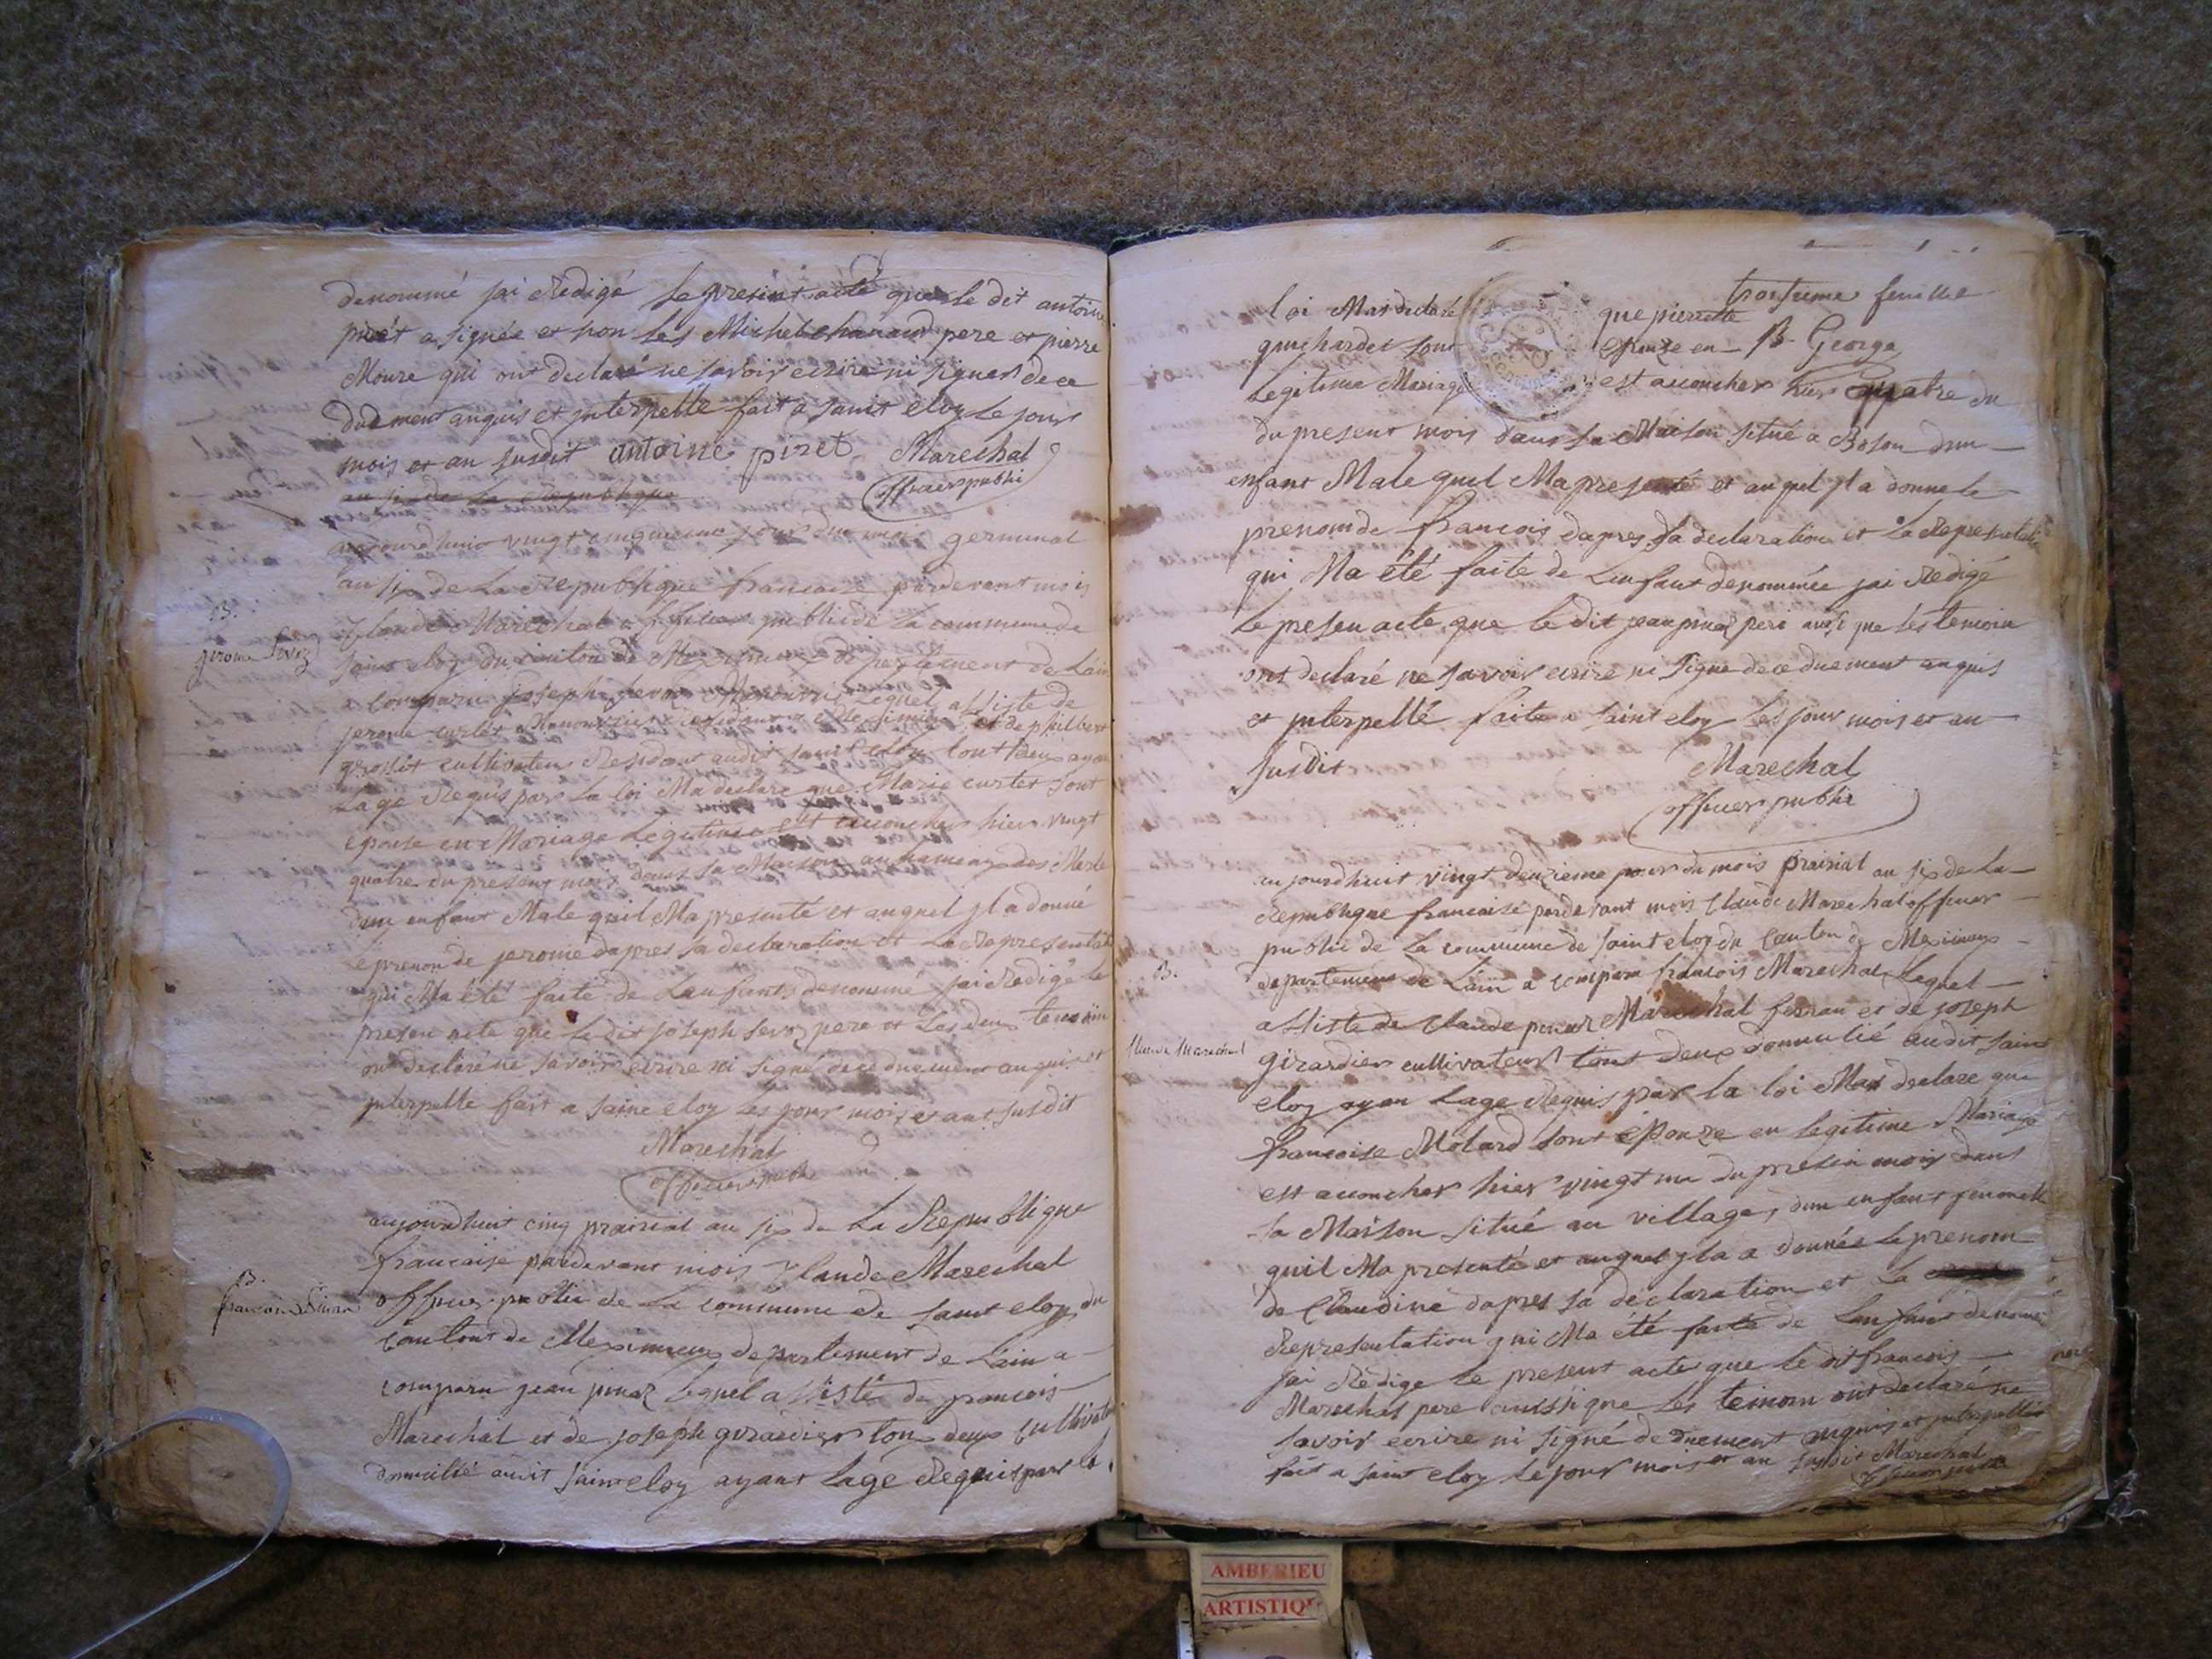 denommé jai Redigé le present acte que le dit antoine
piret a signée et non les Michel pere et pierre
Moure qui ont declaré ne savoir ecrire ni signer de ce
duement anquis et jnterpellé fait a saint eloy le jour
mois et an susdit antoine piret Marechal
officier public
an six de la Republique
aujourdhuis vingt cinquieme jour du mois germinal
an six de la Republique francaise pardevant mois
Claude Marechal officier public de la commune de
saint eloy du canton de Meximieux departement de Lain
a comparu joseph sevoz Manouvrie Lequel assiste de
jerome curtet Manouvrier et de philbert
grossit cultivateur Residant audit saint eloy tout deux ayan
Lage Requis par la loi Ma declare que Marie curtet sont
epouse en Mariage Legitime est accoucher hier vingt
quatre du present mois dans sa Maison au hameaux des Merle
dun enfant Male quil Ma presenté et auquel jl a donné
le prenom de jerome dapres sa declaration et la Representati
qui Ma été faite de Lenfant denommé jai Redigé le
presen acte que le dit joseph sevoz pere et les deux temoin
on declaré ne savoir ecrire ni signé de ce duement anquis et
jnterpellé fait a saint eloy les jour mois et ant susdit
Marechal
officier public
B.
jerome sevoz
aujourdhuit cinq prairial an six de La Republique
francaise pardevant mois Claude Marechal
officier public de la commune de saint eloy du
canton de Meximieux departement de Lain a
comparu jean pinaz Lequel assisté de francois
Marechal et de joseph girardier tous deux cultivateur
domicilié audit saint eloy ayant Lage Requis par la
B.
francois
troisieme feuille
loi Mas declaré que pierrette
guichardet sont epouze en B. George
Legitime Mariage est accoucher hier quatre du
du present mois dans sa Maison situé a Boson dun
enfant Male quil Ma presenté et auquel jl a donne le
prenom de francois dapres sa declaration et la Representati
qui Ma été faite de Lenfant denommée jai Redigé
Le presen acte que le dit jean pinaz pere ausi que les temoin
ont declaré ne savoir ecrire ni signe de ce duement anquis
et jnterpellé faite a saint eloy les jour mois et an
susdit Marechal
officier public
aujourdhuit vingt deuxieme jour du mois prairial an six de La
Republique francaise pardevant mois Claude Marechal officier
public de La commune de saint eloy du canton de Meximieux
departement de Lain a comparu francois Marechal Lequel
assiste de Claude pinaz Marechal ferran et de joseph
girardier cultivateur tout deux domicilié audit saint
eloy ayan Lage Requis par la loi Mas declare que
francoise Molard sont épouze en legitime Mariage
est accoucher hier vingt un du presen mois dans
sa Maison situé au village, dun enfant femelle
quil Ma presenté et auquel jl a a donnée le prenom
de Claudine dapres sa declaration et La
Representation qui Ma été faite de Lenfant denomé
jai Rédige le present acte que le dit francois
Marechal pere aussi que les temoin ont declaré ne
savoir ecrire ni signé de duement anquis et jnterpellé
fait a saint eloy le jour mois et an susdit Marechal
officier public
B.
Claudine Marechal
AMBERIEU
ARTISTIQ